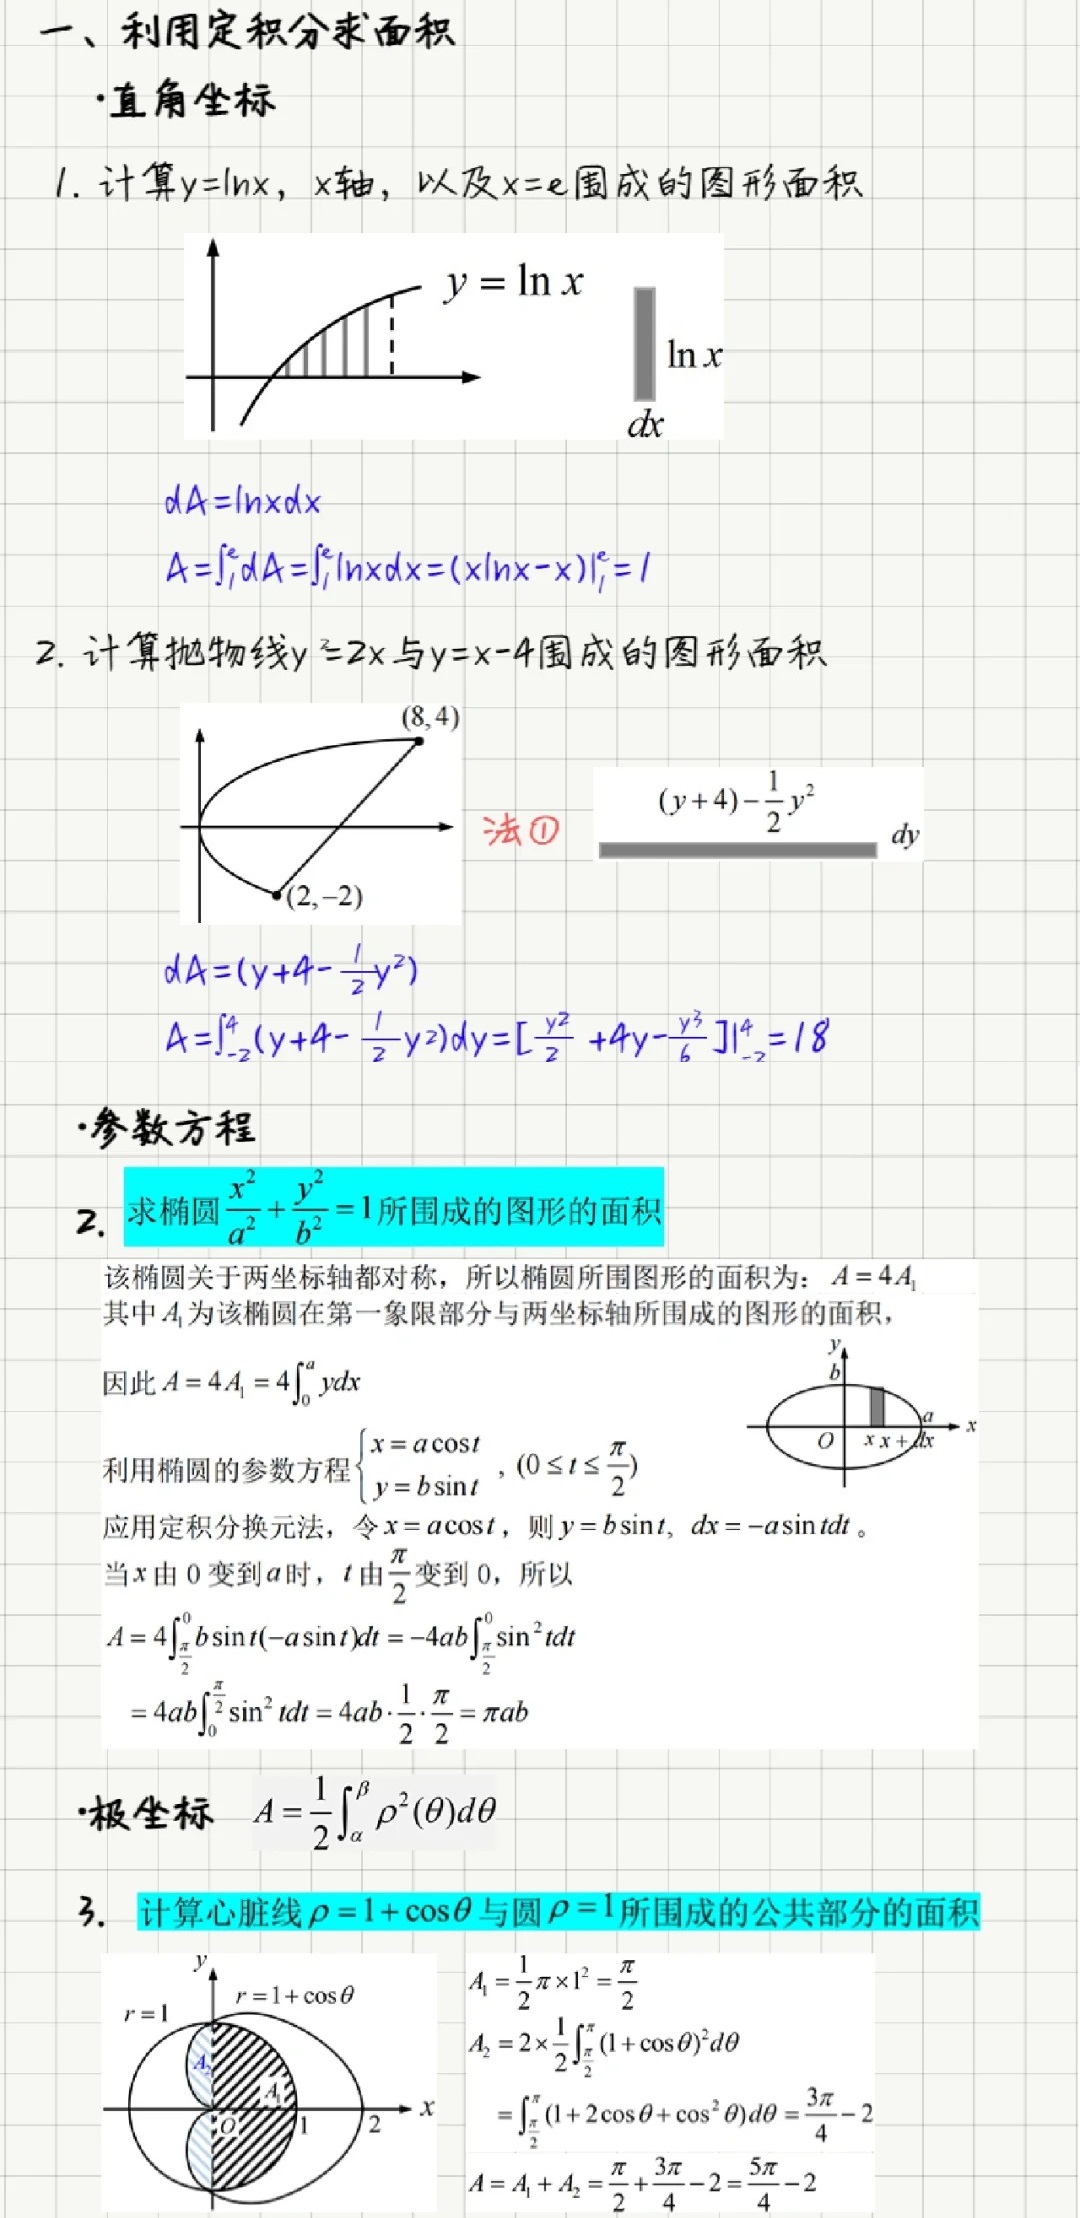 一、利用定积分求面积
·直角坐标
1. 计算y=lnx，x轴，以及x=e围成的图形面积
y = ln x
ln x
dx
dA=lnxdx
A=∫₁ᵉdA=∫₁ᵉlnxdx=(xlnx-x)|₁ᵉ=1
2. 计算抛物线y²=2x与y=x-4围成的图形面积
(8,4)
(2,−2)
法①
(y+4)−1/2 y²
dy
dA=(y+4-1/2 y²)
A=∫₋₂⁴(y+4-1/2 y²)dy=[y²/2+4y-y³/6]|₋₂⁴=18
·参数方程
2. 求椭圆 x²/a² + y²/b² = 1所围成的图形的面积
该椭圆关于两坐标轴都对称，所以椭圆所围图形的面积为：A = 4A₁
其中A₁为该椭圆在第一象限部分与两坐标轴所围成的图形的面积，
因此 A = 4A₁ = 4∫₀ᵃ ydx
y
b
a
O
x
x+dx
x
利用椭圆的参数方程{x = a cos t, y = b sin t ，(0 ≤ t ≤ π/2)
应用定积分换元法，令x = a cos t，则y = b sin t, dx = −a sin tdt。
当x由 0 变到a时，t由π/2变到 0，所以
A = 4∫_{π/2}^{0} b sin t(−a sin t)dt = −4ab∫_{π/2}^{0} sin² tdt
= 4ab∫_{0}^{π/2} sin² tdt = 4ab·1/2·π/2 = πab
·极坐标 A = 1/2 ∫_{α}^{β} ρ²(θ)dθ
3. 计算心脏线ρ = 1+ cosθ与圆ρ = 1所围成的公共部分的面积
y
r = 1
r = 1+ cosθ
A₂
A₁
O
1
2
x
A₁ = 1/2 π×1² = π/2
A₂ = 2×1/2 ∫_{π/2}^{π} (1+ cosθ)²dθ
= ∫_{π/2}^{π} (1+ 2cosθ + cos²θ)dθ = 3π/4 − 2
A = A₁ + A₂ = π/2 + 3π/4 − 2 = 5π/4 − 2